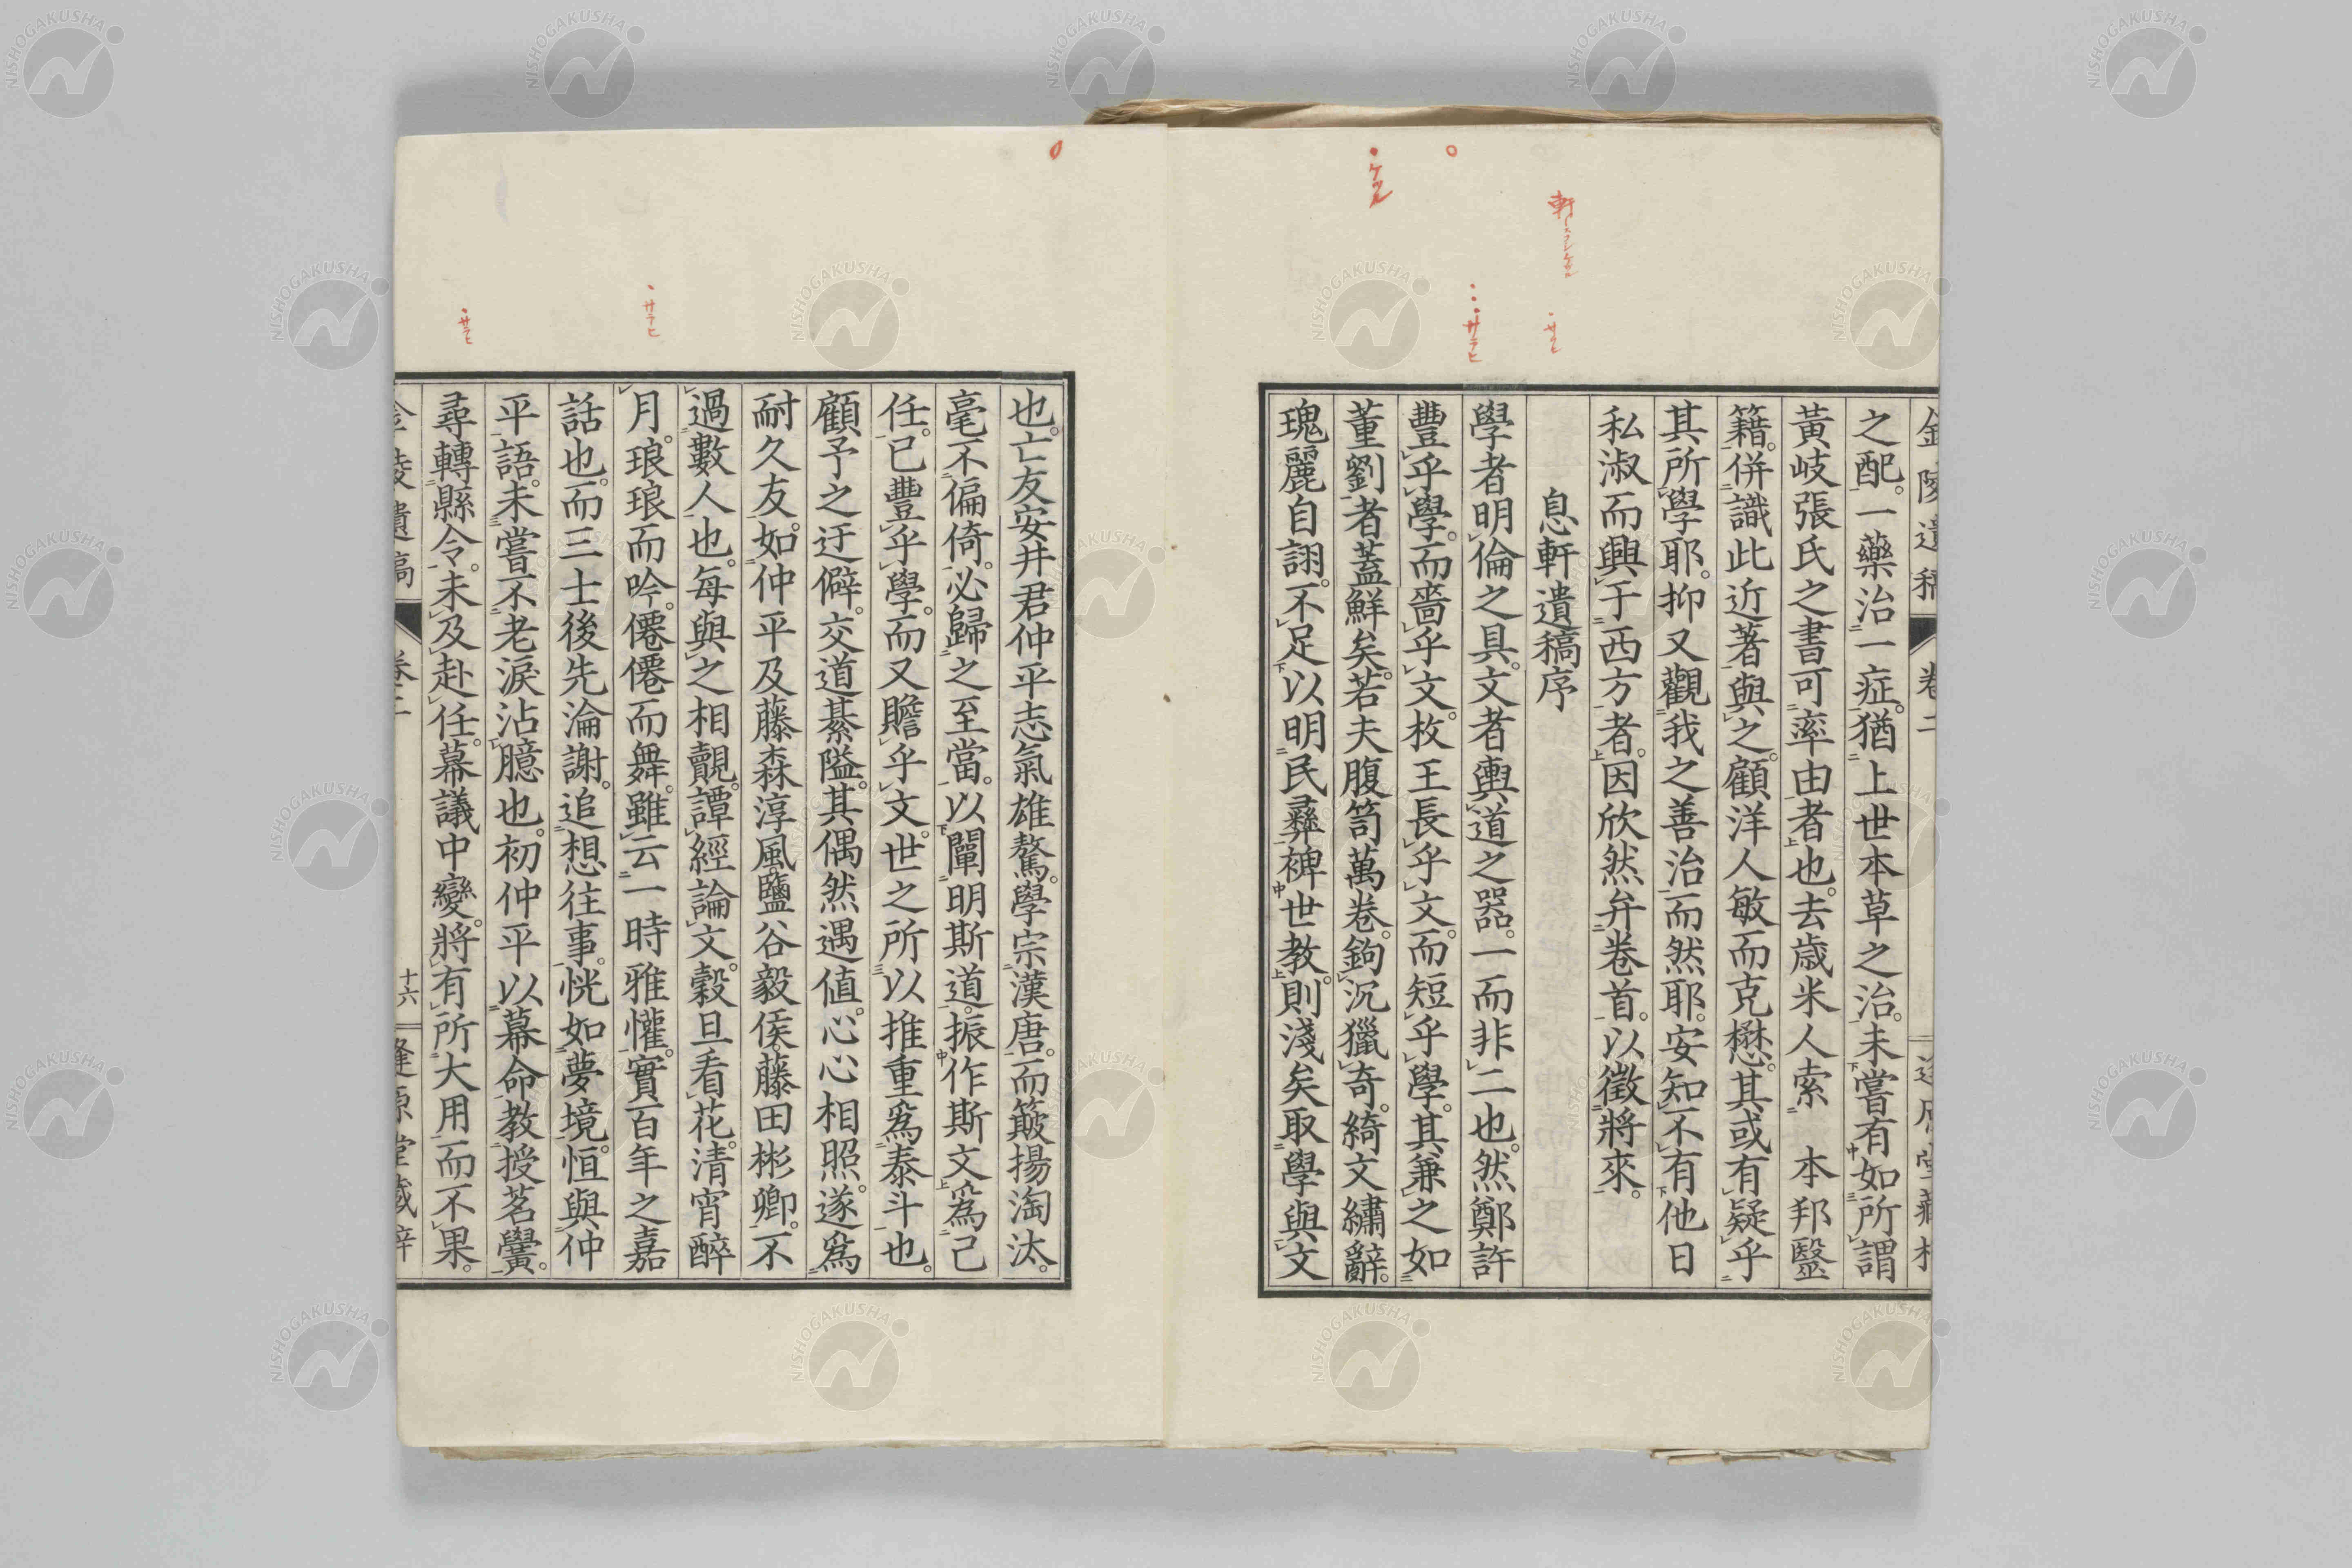 之配。一藥治一症。猶上世本草之治。未嘗有如所謂
黃岐張氏之書可率由者也。去歲米人索 本邦毉
籍。併識此近著與之。顧洋人敏而克懋。其或有疑乎
其所學耶。抑又觀我之善治而然耶。安知不有他日
私淑而興于西方者。因欣然弁卷首。以徵將來。
息軒遺稿序
學者明倫之具。文者輿道之器。一而非二也。然鄭許
豐乎學。而嗇乎文。枚王長乎文。而短乎學。其兼之如
董劉者蓋鮮矣。若夫腹笥萬卷。鉤沉獵奇。綺文繡辭。
瑰麗自詡。不足以明民彝裨世教。則淺矣取學與文
也。亡友安井君仲平志氣雄驁。學宗漢唐。而簸揚淘汰。
毫不偏倚。必歸之至當。以闡明斯道。振作斯文爲己
任。已豐乎學。而又贍乎文。世之所以推重爲泰斗也。
顧予之迂僻。交道綦隘。其偶然遇値。心心相照。遂爲
耐久友。如仲平及藤森淳風鹽谷毅侯藤田彬卿。不
過數人也。每與之相覿。譚經論文。穀旦看花。清宵醉
月。琅琅而吟。僊僊而舞。雖云一時雅懽。實百年之嘉
話也。而三士後先淪謝。追想往事。恍如夢境。恒與仲
平語。未嘗不老淚沾臆也。初仲平以幕命教授茗黌。
尋轉縣令。未及赴任。幕議中變。將有所大用而不果。
卷二
十六